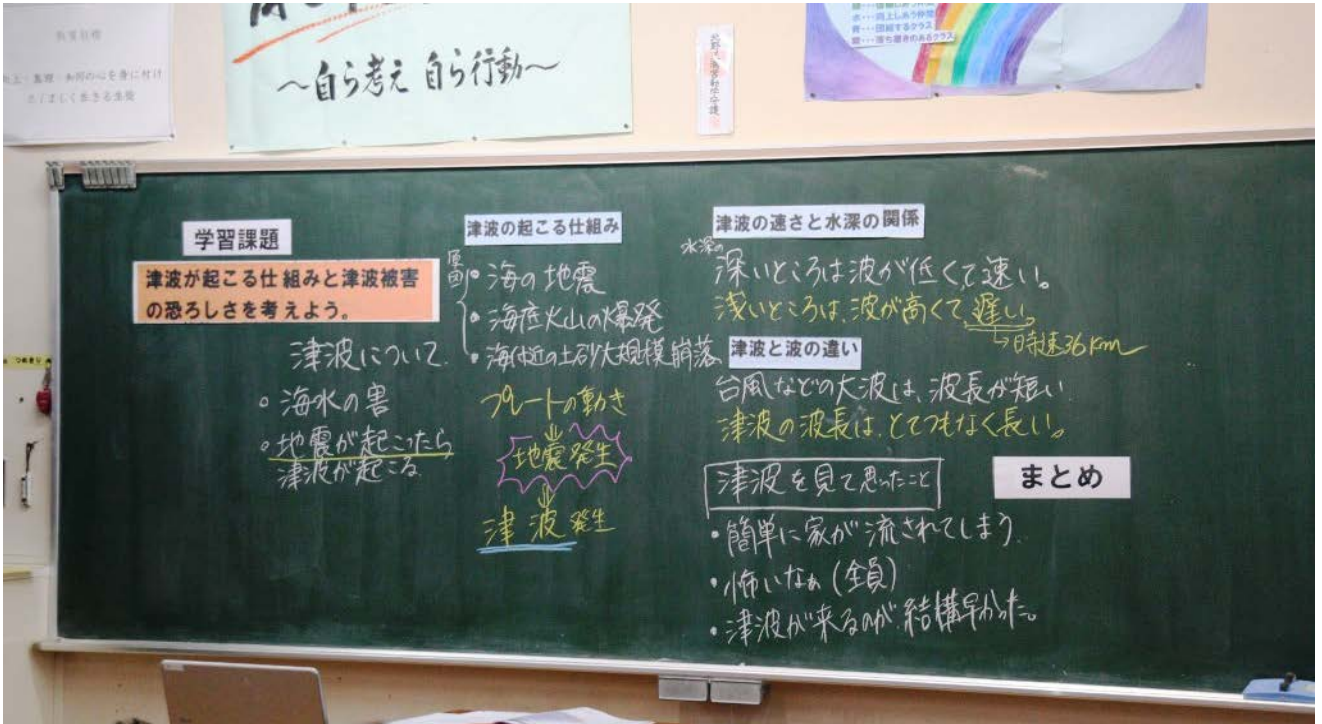 ～自ら考え 自ら行動～
教室目標
水・・・向上しあう仲間
青・・・団結するクラス
落ち着きのあるクラス
学習課題
津波が起こる仕組みと津波被害
の恐ろしさを考えよう。
津波について
海水の害
地震が起こったら
津波が起こる
津波の起こる仕組み
原因
・海の地震
・海底火山の爆発
・海付近の土砂大規模崩落
プレートの動き
⇓
地震発生
⇓
津波発生
津波の速さと水深の関係
水深の
深いところは波が低くて速い。
浅いところは、波が高くて、遅い。
→時速36km
津波と波の違い
台風などの大波は、波長が短い
津波の波長は、とてつもなく長い。
津波を見て思ったこと
・簡単に家が流されてしまう
・怖いなぁ(全員)
・津波が来るのが結構早かった。
まとめ